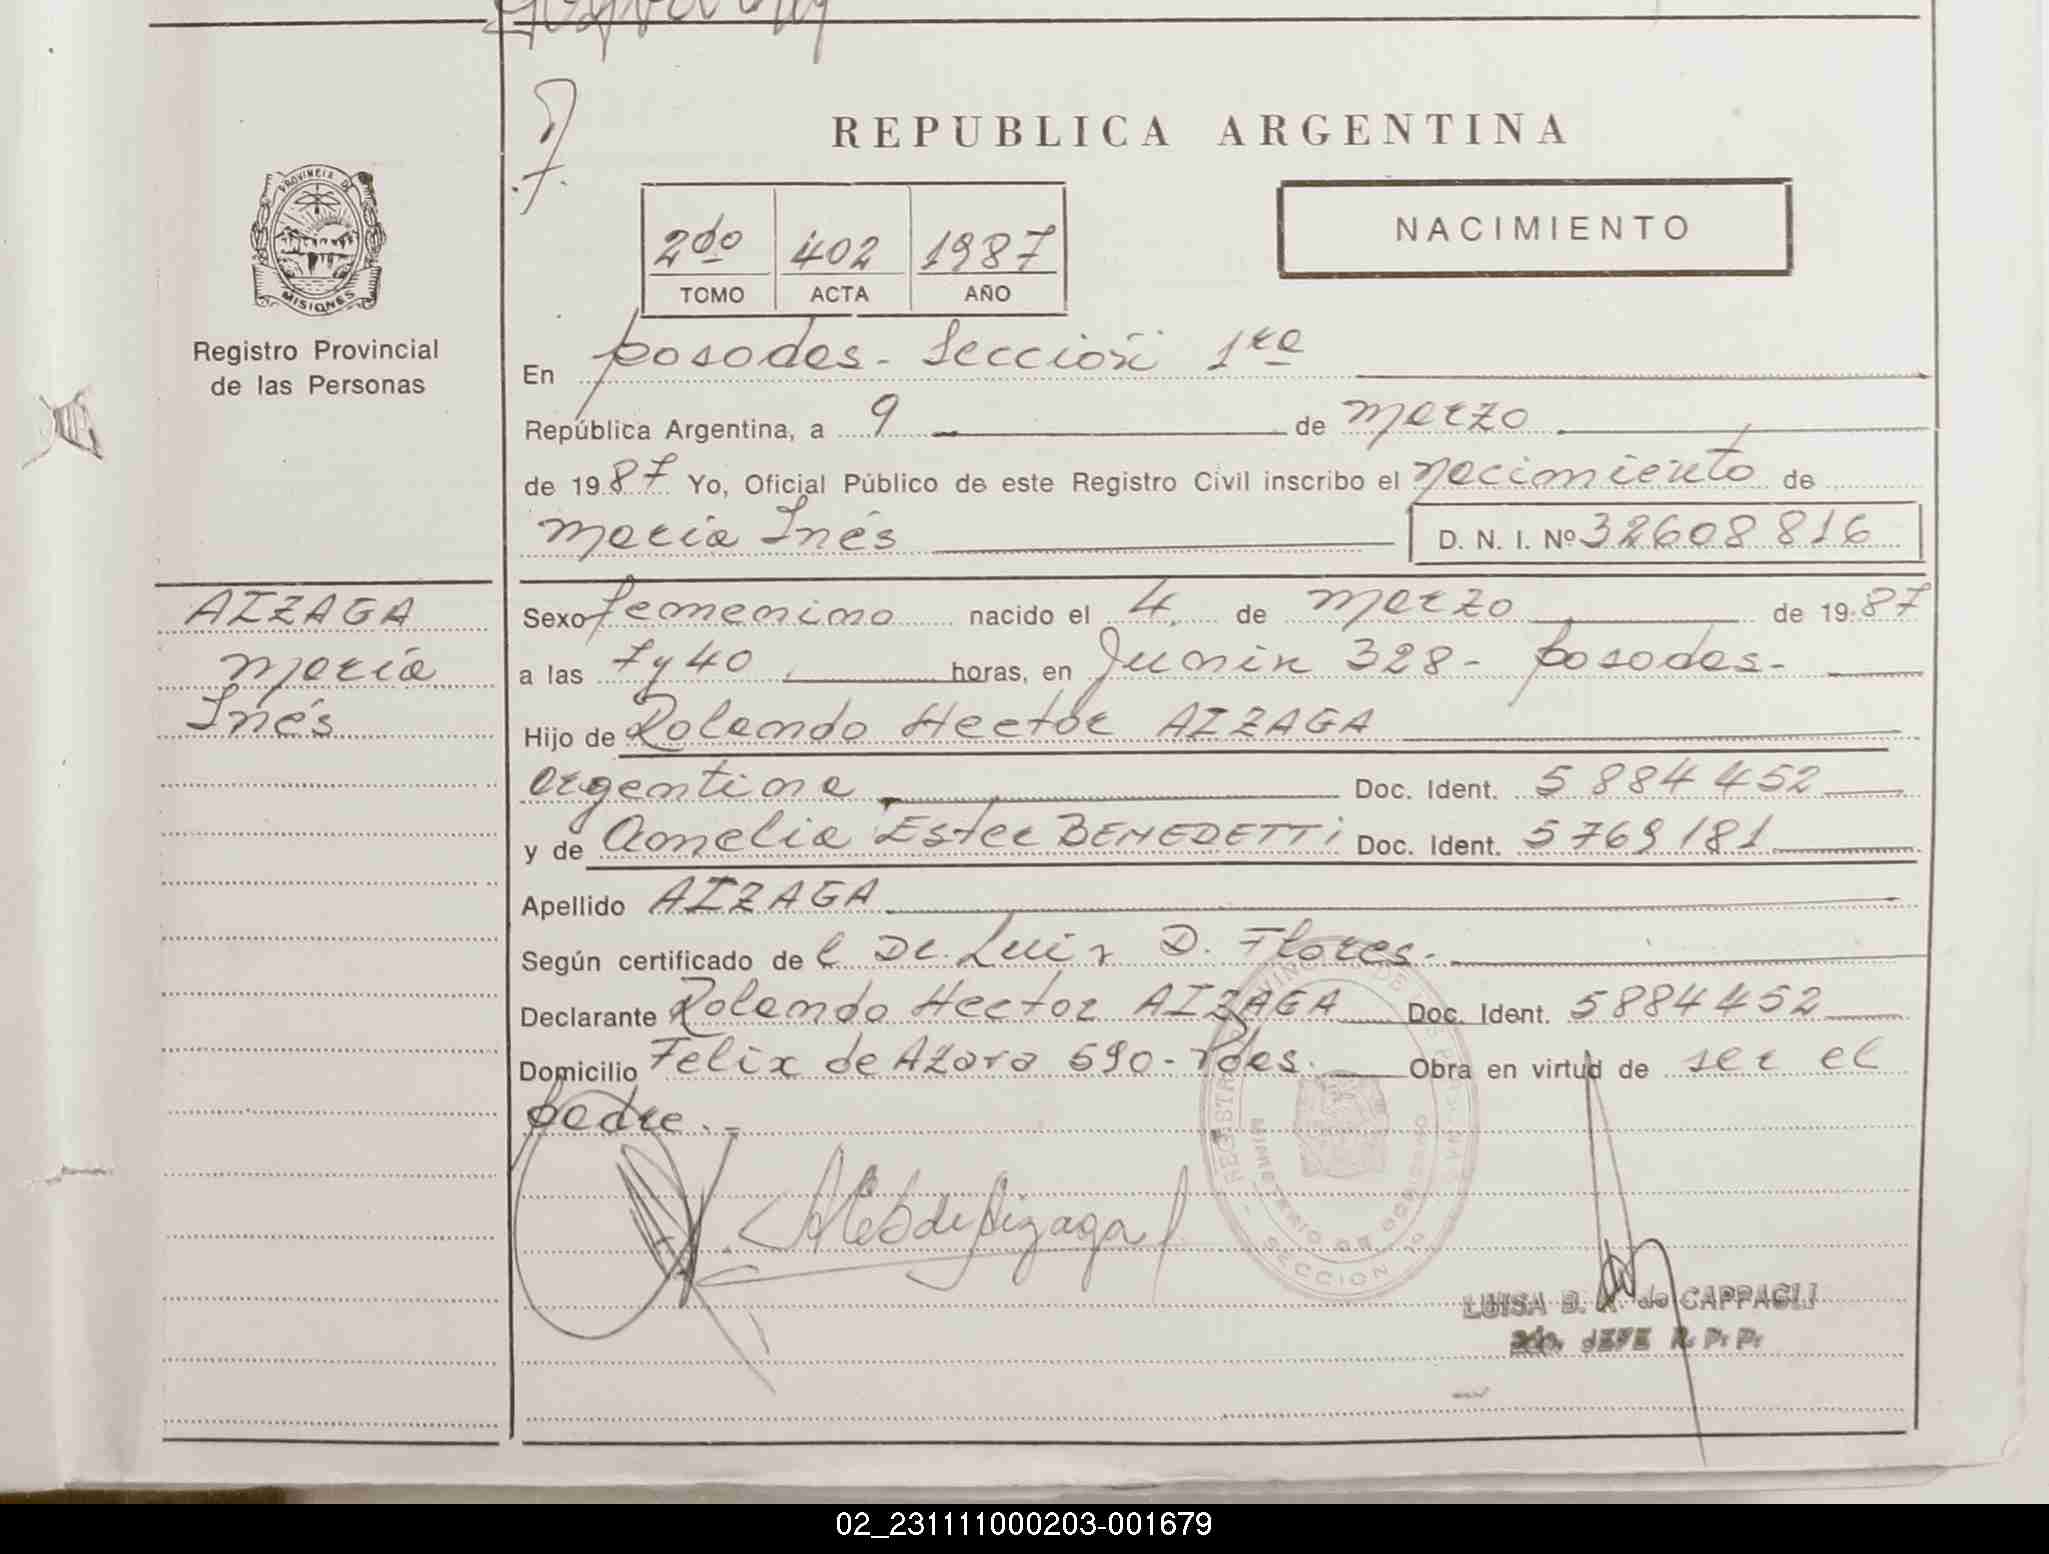 REPUBLICA ARGENTINA
PROVINCIA DE
MISIONES
Registro Provincial
de las Personas
NACIMIENTO
2do 402 1987
TOMO ACTA AÑO
En Posadas - Sección 1ra
República Argentina, a 9 de marzo
de 1987 Yo, Oficial Público de este Registro Civil inscribo el nacimiento de
María Inés D. N. I. Nº 32608816
AIZAGA
María
Inés
Sexo femenino nacido el 4 de marzo de 1987
a las 7 y 40 horas, en Junín 328 - Posadas -
Hijo de Rolando Hector AIZAGA
argentina Doc. Ident. 5884452
y de Amelia Ester BENEDETTI Doc. Ident. 5769181
Apellido AIZAGA
Según certificado de l Dr. Luis D. Flores.
Declarante Rolando Hector AIZAGA Doc. Ident. 5884452
Domicilio Felix de Azara 590 - Pdas. Obra en virtud de ser el
padre. -
REGISTRO PROVINCIAL DE LAS PERSONAS
MINISTERIO DE GOBIERNO
SECCION 1a
LUISA B. A. de CAPPAGLI
2do. JEFE R. P. P.
02_231111000203-001679